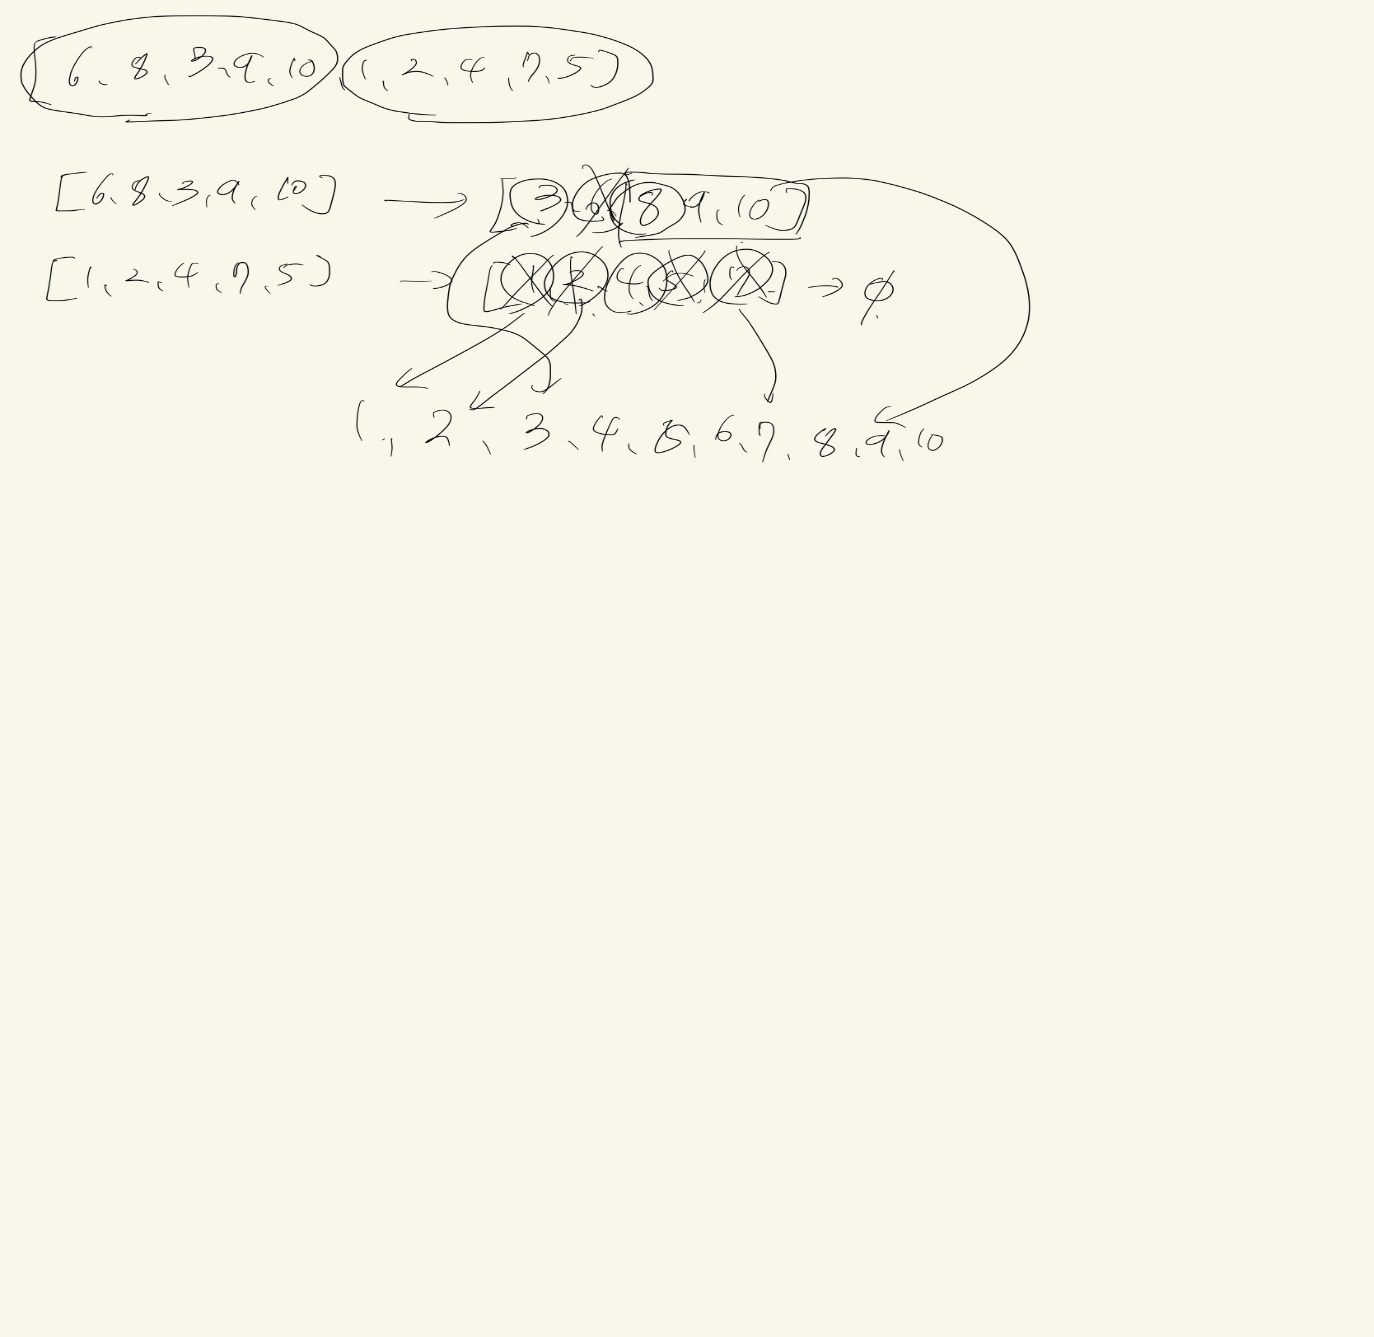 [6, 8, 3, 9, 10, 1, 2, 4, 7, 5]
[6, 8, 3, 9, 10] → [3, 6, 8, 9, 10]
[1, 2, 4, 7, 5] → [1, 2, 4, 5, 7] → ∅
1, 2, 3, 4, 5, 6, 7, 8, 9, 10